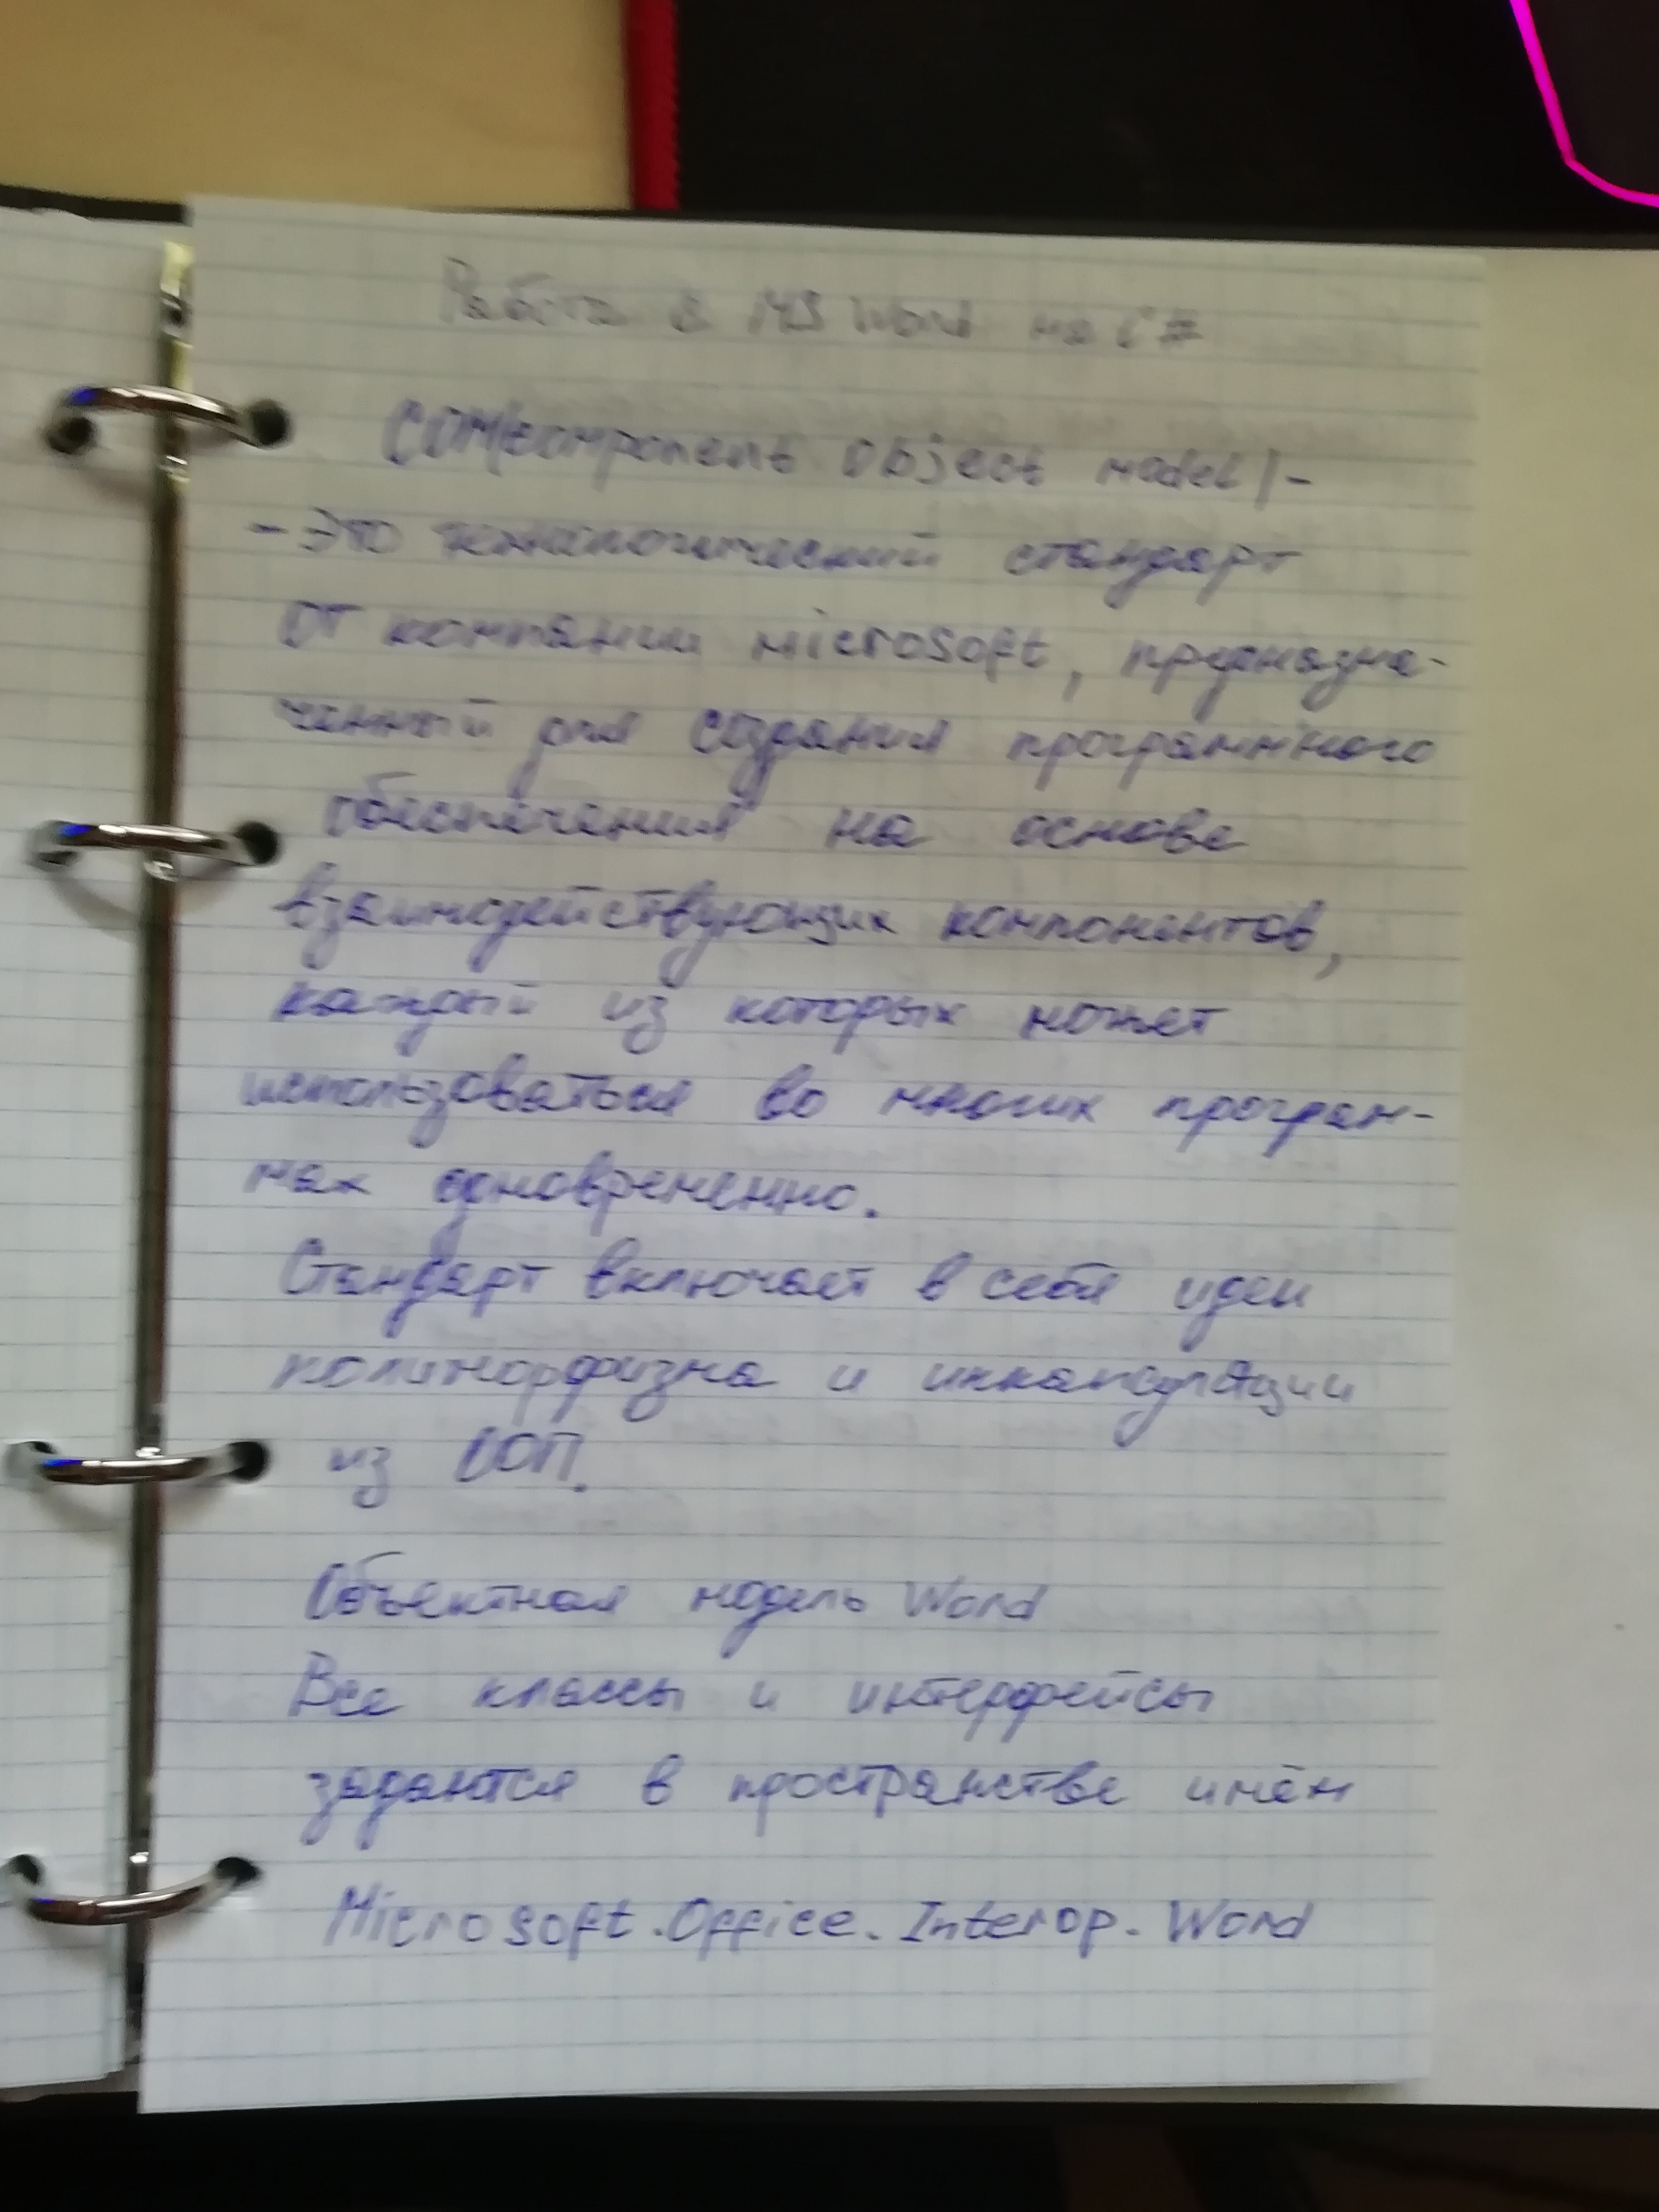 Работа в MS Word на C#
COM(component object model) -
- это технологический стандарт
от компании microsoft, предназна-
ченный для создания программного
обеспечения на основе
взаимодействующих компонентов,
каждый из которых может
использоваться во многих програм-
мах одновременно.
Стандарт включает в себя идеи
полиморфизма и инкапсуляции
из ООП.
Объектная модель Word
Все классы и интерфейсы
задаются в пространстве имён
Microsoft.Office.Interop.Word